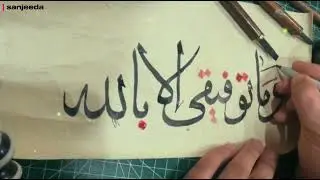 sanjeeda
وما توفيقي إلا بالله